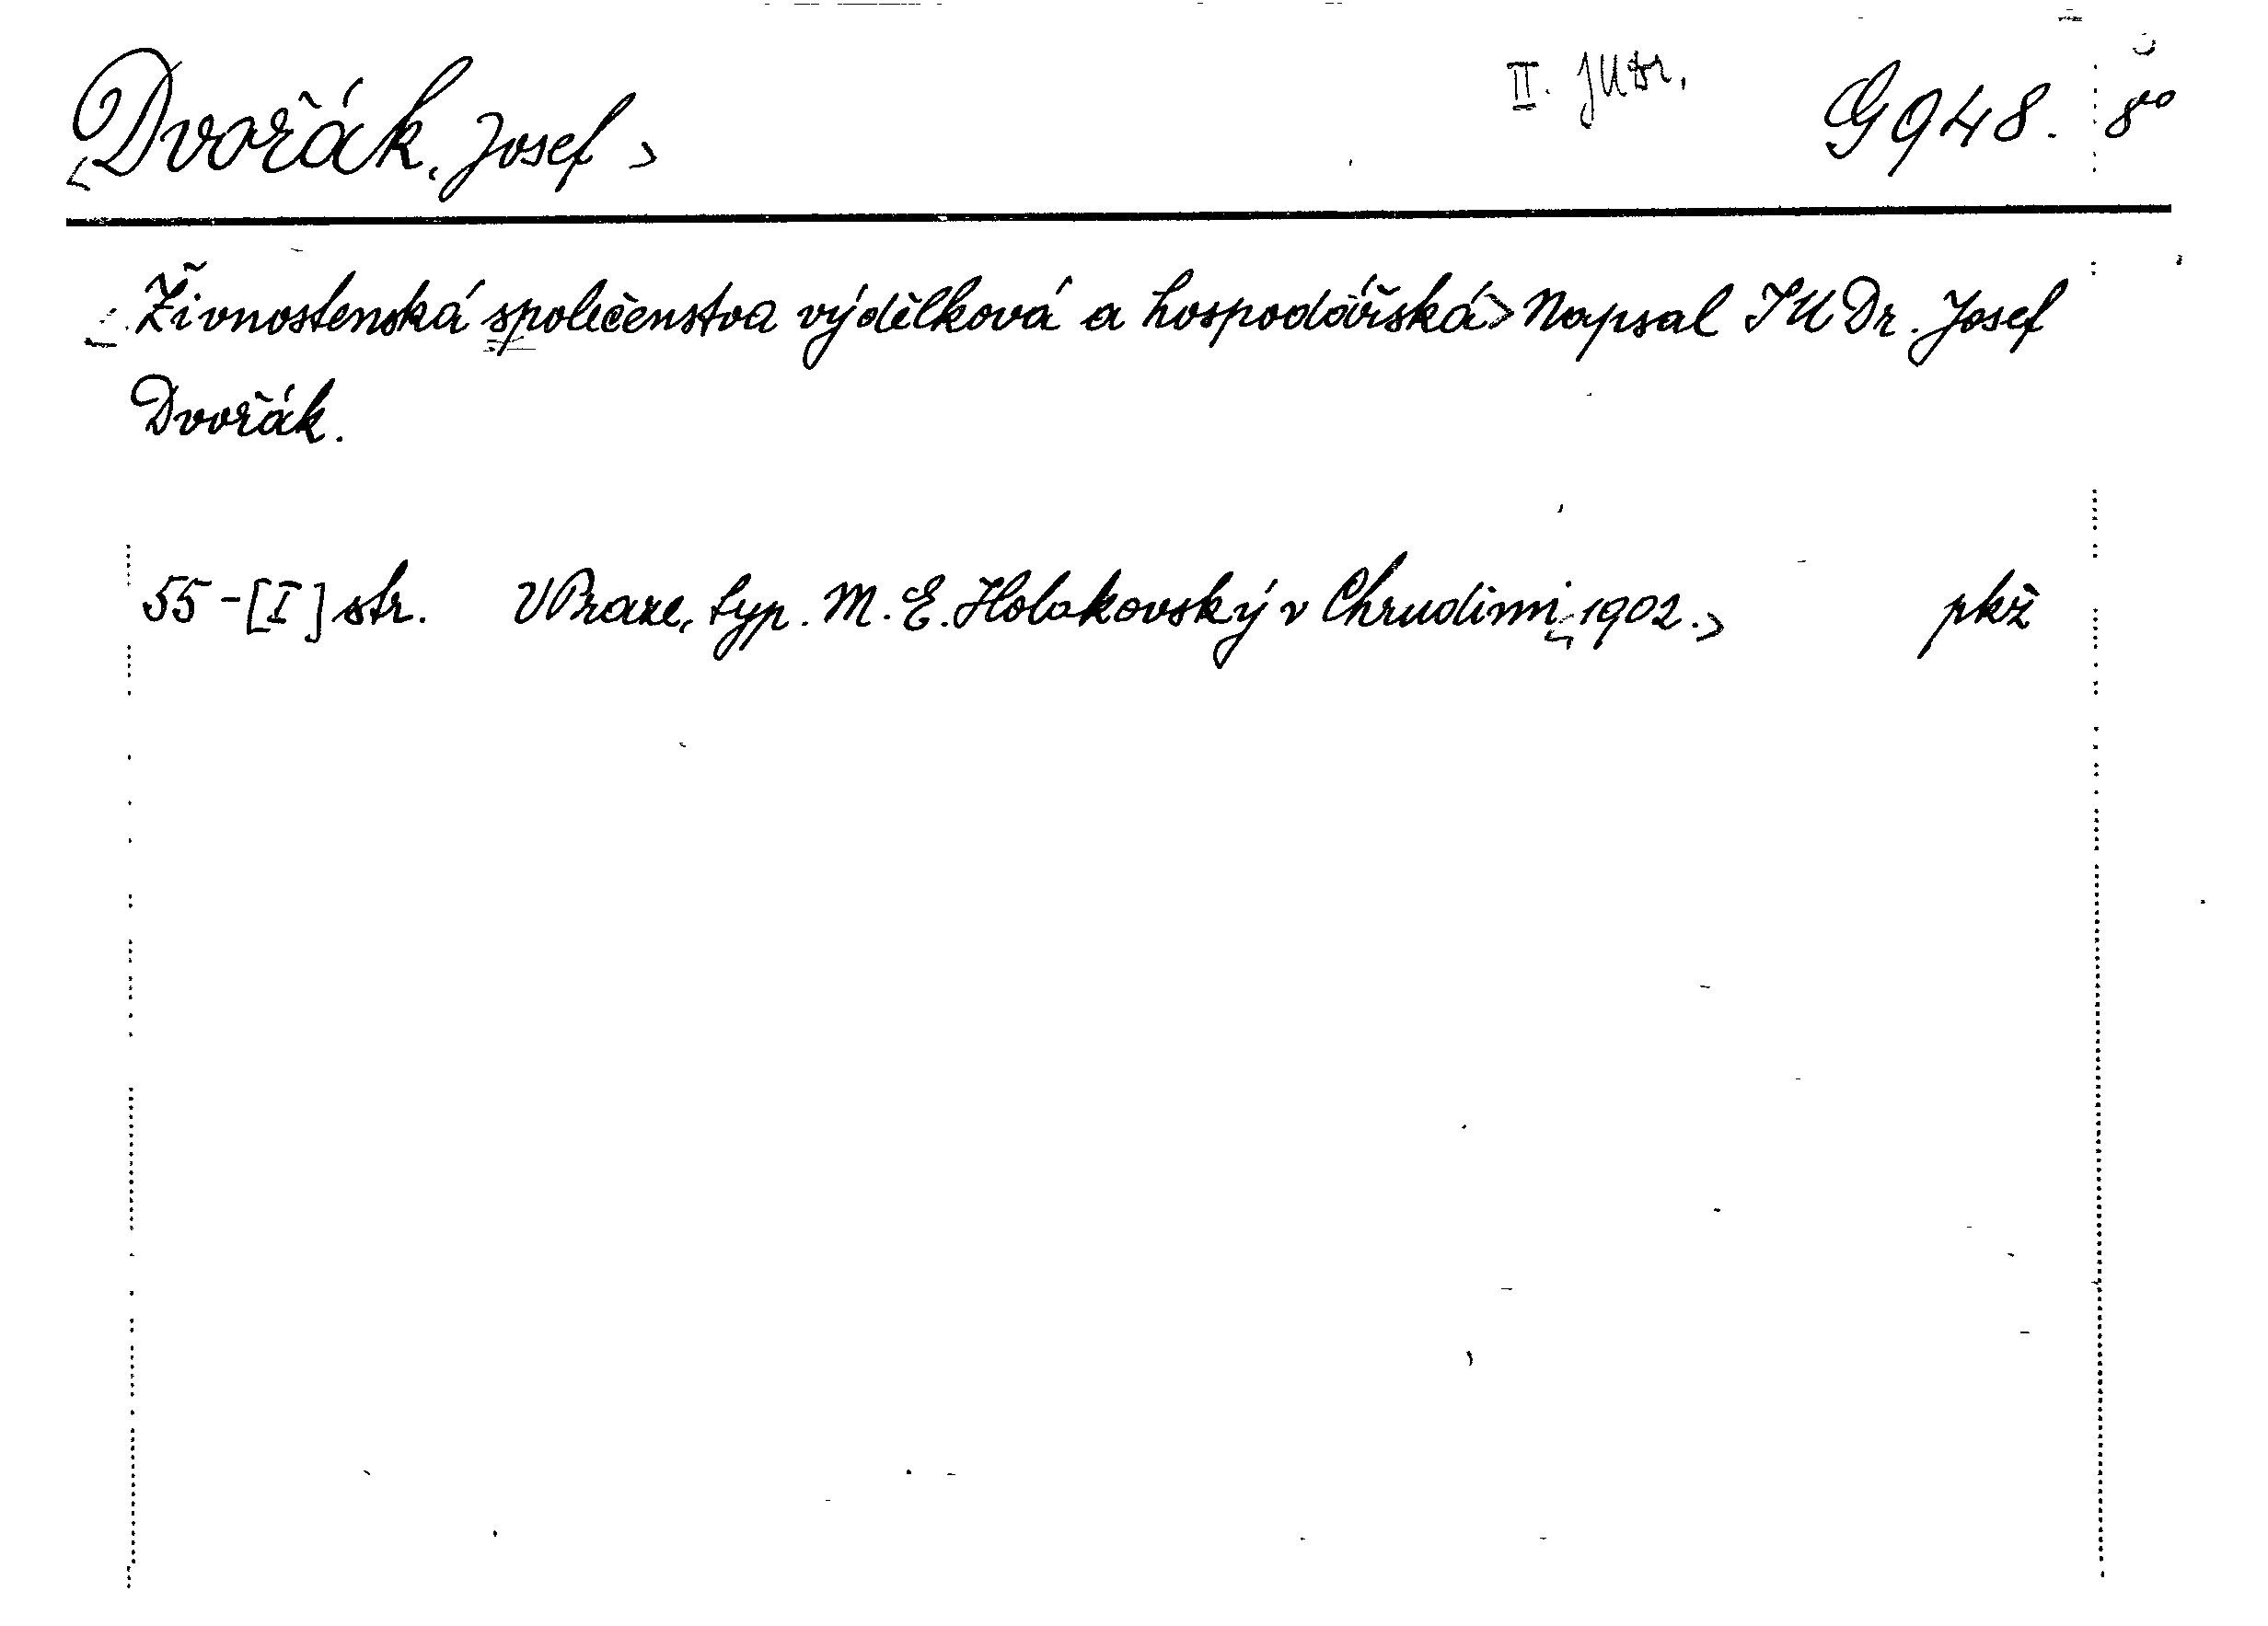 <Dvořák, Josef> II. JUDr. G 948. 8°
<Živnostenská společenstva výdělková a hospodářská> Napsal JUDr. Josef
Dvořák.
55-[I] str. V Praze, typ. M. E. Holakovský v Chrudimi, <1902.> pkž